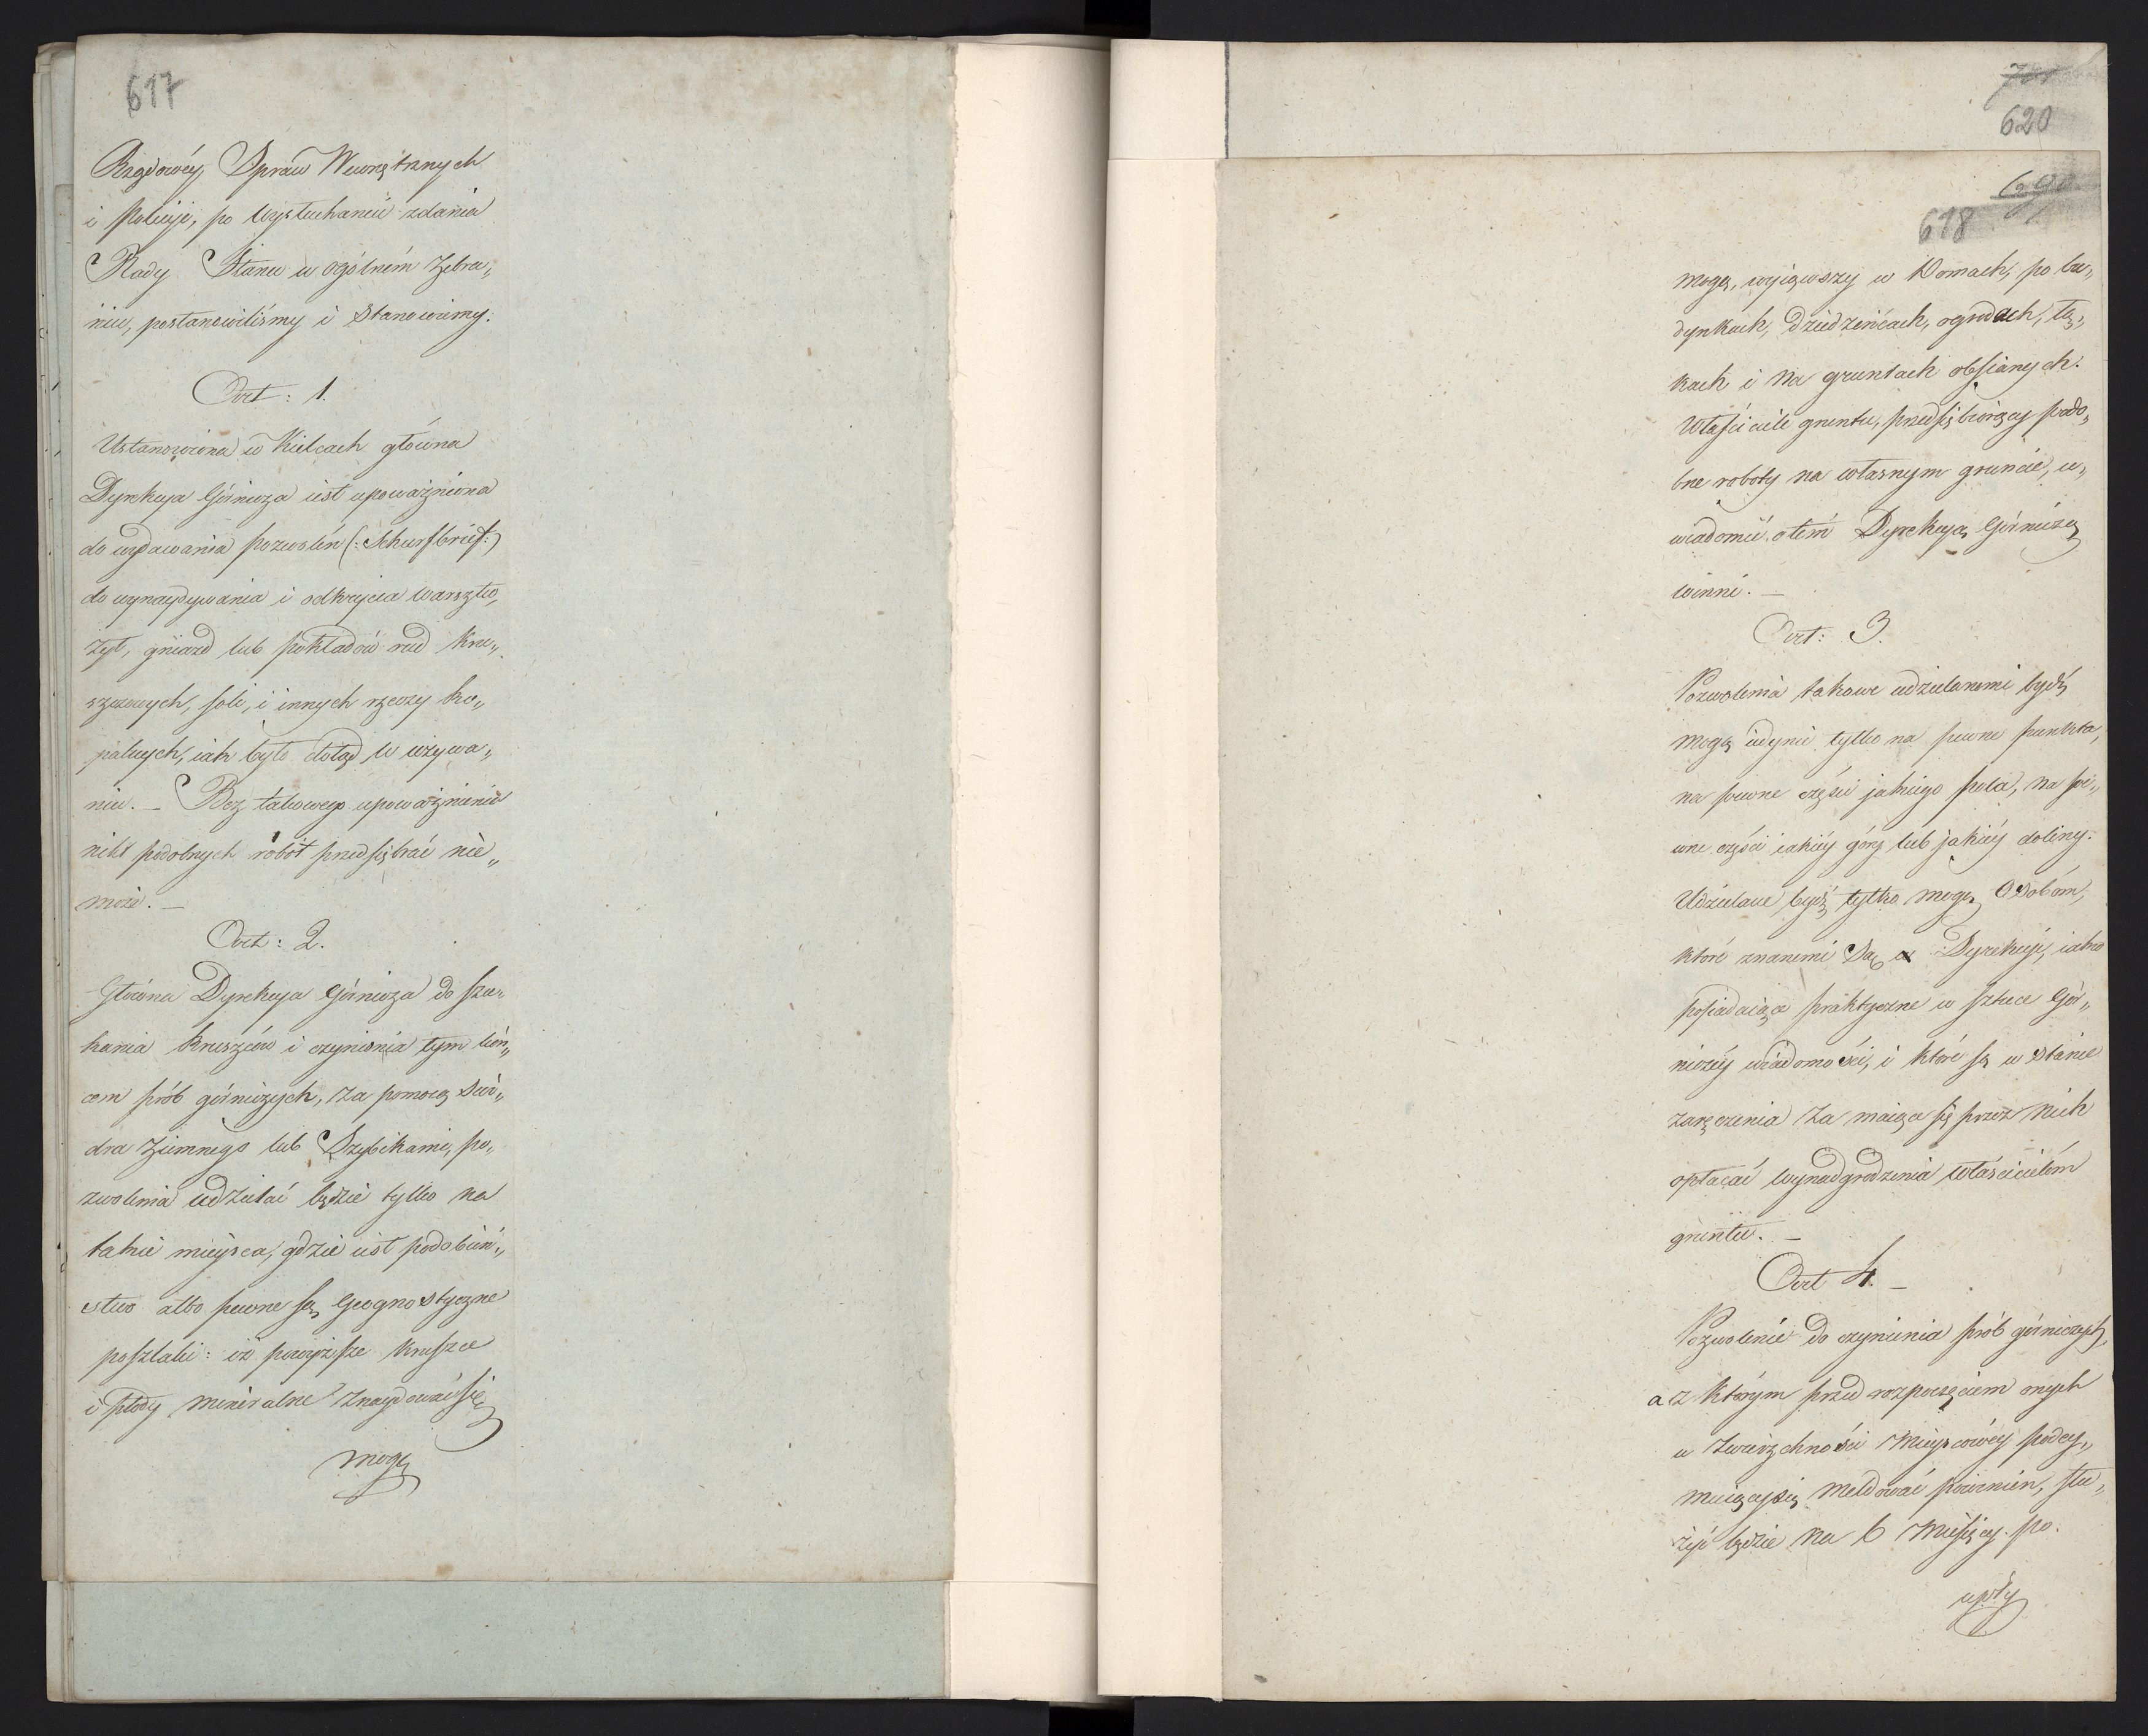 617
Rządowéy Spraw Wewnętrznych
i Policyi, po wysłuchaniu zdania
Rady Stanu w ogólném Zebra„
niu, postanowiliśmy i Stanowimy:
Art: 1.
Ustanowiona w Kielcach główna
Dyrekcya Górnicza iest upoważniona
do wydawania pozwoleń (: Schurfbrief :)
do wynaydywania i odkrycia warsztw,
żył, gniazd lub pokładów rud kru„
szcowych, soli, i innych rzeczy ko„
palnych, iak było dotąd w używa„
niu. — Bez takowego upoważnienia
nikt podobnych robót przedsiębrać nie„
może. —
Art: 2.
Główna Dyrekcya Górnicza do szu„
kania Kruszców i czynienia tym koń„
cem prób górniczych, za pomocą świ„
dra ziemnego lub Szybikami, po„
zwolenia udzielać będzie tylko na
takie mieysca, gdzie iest podobień„
stwo albo pewne są Geognostyczne
poszlaki: iż powyższe Kruszce
i płody mineralne znaydować się
mogą
701
620
690
618
mogą, wyiąwszy w Domach, po bu„
dynkach, Dziedzińcach, ogrodach, łą„
kach i na gruntach obsianych.
Właściciele gruntu, przedsiębiorący podo„
bne roboty na własnym gruncie, u„
wiadomić o tém Dyrekcyą Górniczą
winni. —
Art: 3.
Pozwolenia takowe udzielanemi bydź
mogą iedynie tylko na pewne punkta,
na pewne części jakiego pola, na pe„
wne części iakiéy góry lub jakiéy doliny.
Udzielane bydź tylko mogą Osobom,
które znanemi Są Dyrekcyi, iako
posiadaiące praktyczne w sztuce Gór„
niczéy wiadomości, i które są w stanie
zaręczenia za maiące się przez nich
opłacać wynadgrodzenia właścicielom
gruntu. —
Art 4. —
Pozwolenie do czynienia prób górniczych,
a z którym przed rozpoczęciem onych
u Zwierzchności Mieyscowéy podey„
muiącysię meldować powinien, słu„
żyć będzie na 6 Miesięcy. po
upły